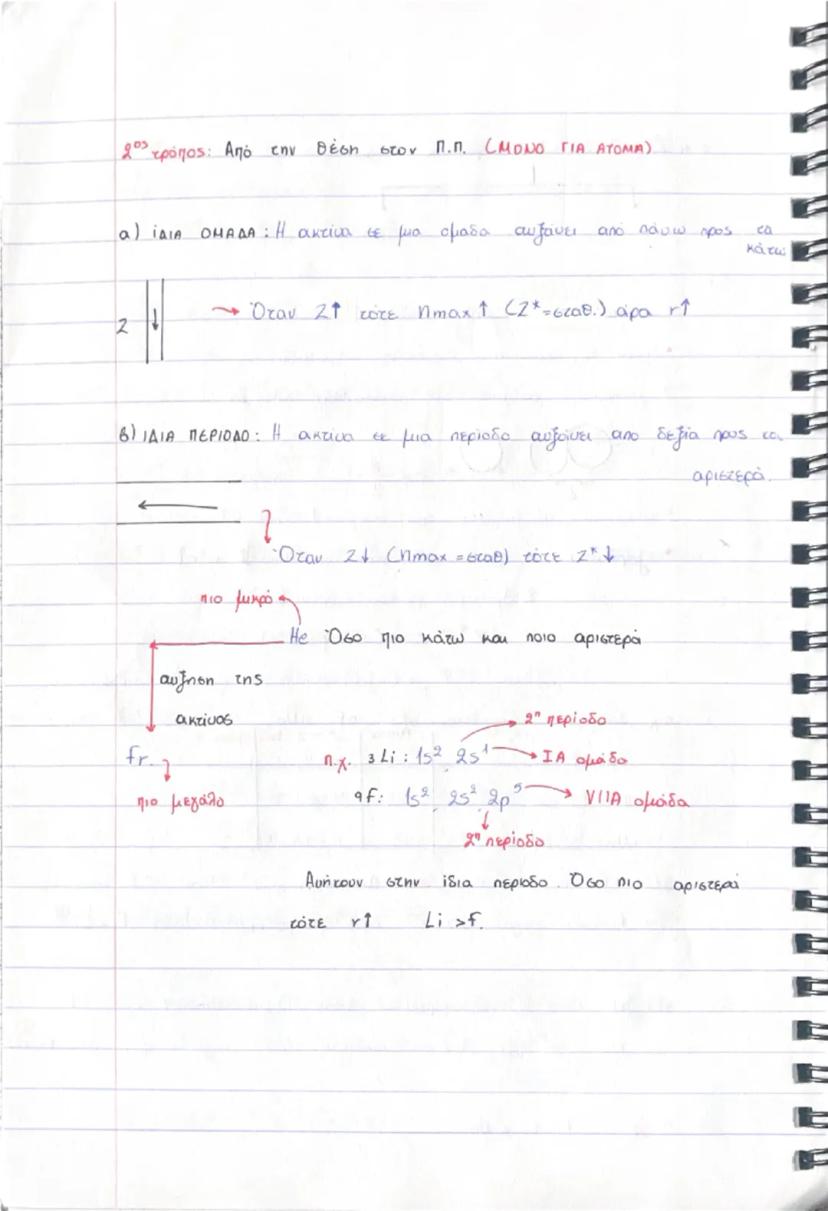 2ος τρόπος: Από την θέση στον Π.Π. (ΜΟΝΟ ΓΙΑ ΑΤΟΜΑ)
α) ίΔΙΑ ΟΜΑΔΑ: Η ακτίνα σε μια ομαδα αυξάνει από πάνω προς τα
κάτω
Z ↓ → Όταν Z↑ τότε nmax↑ (Z*=σταθ.) άρα r↑
β) ΙΔΙΑ ΠΕΡΙΟΔΟ: Η ακτίνα σε μια περίοδο αυξάνει απο δεξία προς τα
αριστερά.
←
Όταν Z↓ (nmax=σταθ) τότε Z*↓
πιο μικρό
He Όσο πιο κάτω και ποιο αριστερά
αυξηση της
ακτίνας
→ 2η περίοδο
fr. π.χ. 3Li: 1s² 2s¹ → IA ομάδα
πιο μεγάλο 9f: 1s² 2s² 2p⁵ → VIIA ομάδα
2η περίοδο
Ανήκουν στην ίδια περίοδο. Όσο πιο αριστερά
τότε r↑ Li >f.